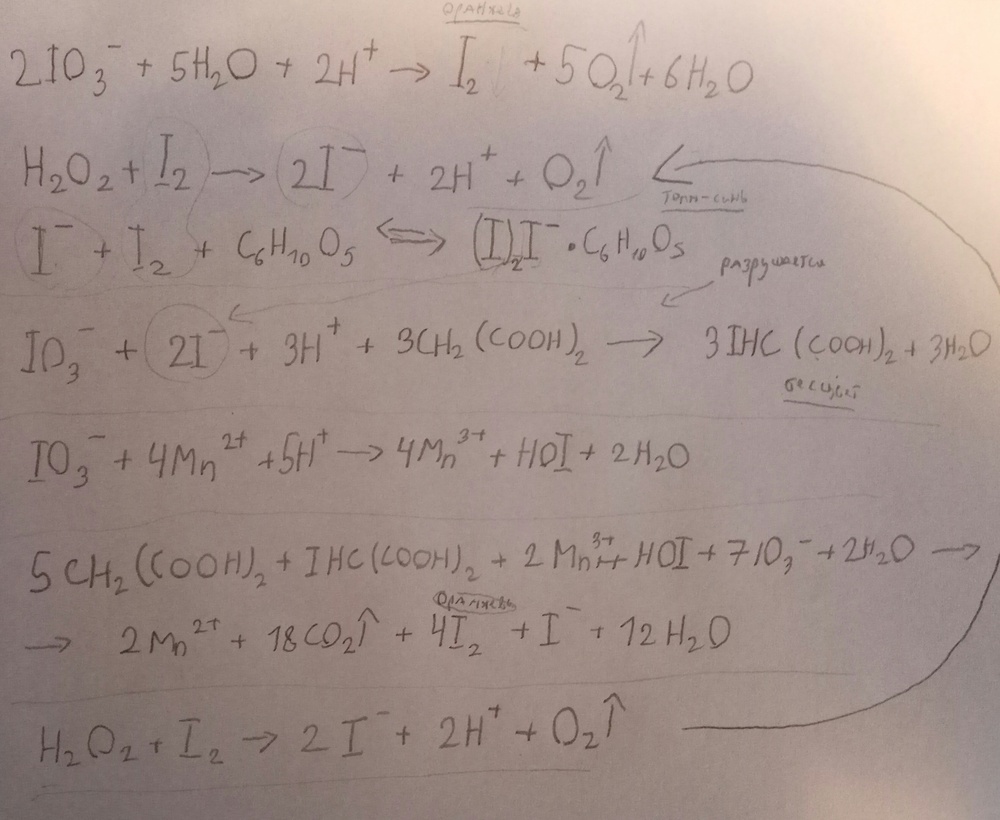 оранжев
2IO₃⁻ + 5H₂O + 2H⁺ → I₂ + 5O₂↑ + 6H₂O
H₂O₂ + I₂ → 2I⁻ + 2H⁺ + O₂↑
тёмн-синь
I⁻ + I₂ + C₆H₁₀O₅ ⇔ (I)₂I⁻ · C₆H₁₀O₅
разрушается
IO₃⁻ + 2I⁻ + 3H⁺ + 3CH₂(COOH)₂ → 3IHC(COOH)₂ + 3H₂O
бесцвет
IO₃⁻ + 4Mn²⁺ + 5H⁺ → 4Mn³⁺ + HOI + 2H₂O
5CH₂(COOH)₂ + IHC(COOH)₂ + 2Mn³⁺ + HOI + 7IO₃⁻ + 2H₂O →
оранжев
→ 2Mn²⁺ + 18CO₂↑ + 4I₂ + I⁻ + 12H₂O
H₂O₂ + I₂ → 2I⁻ + 2H⁺ + O₂↑